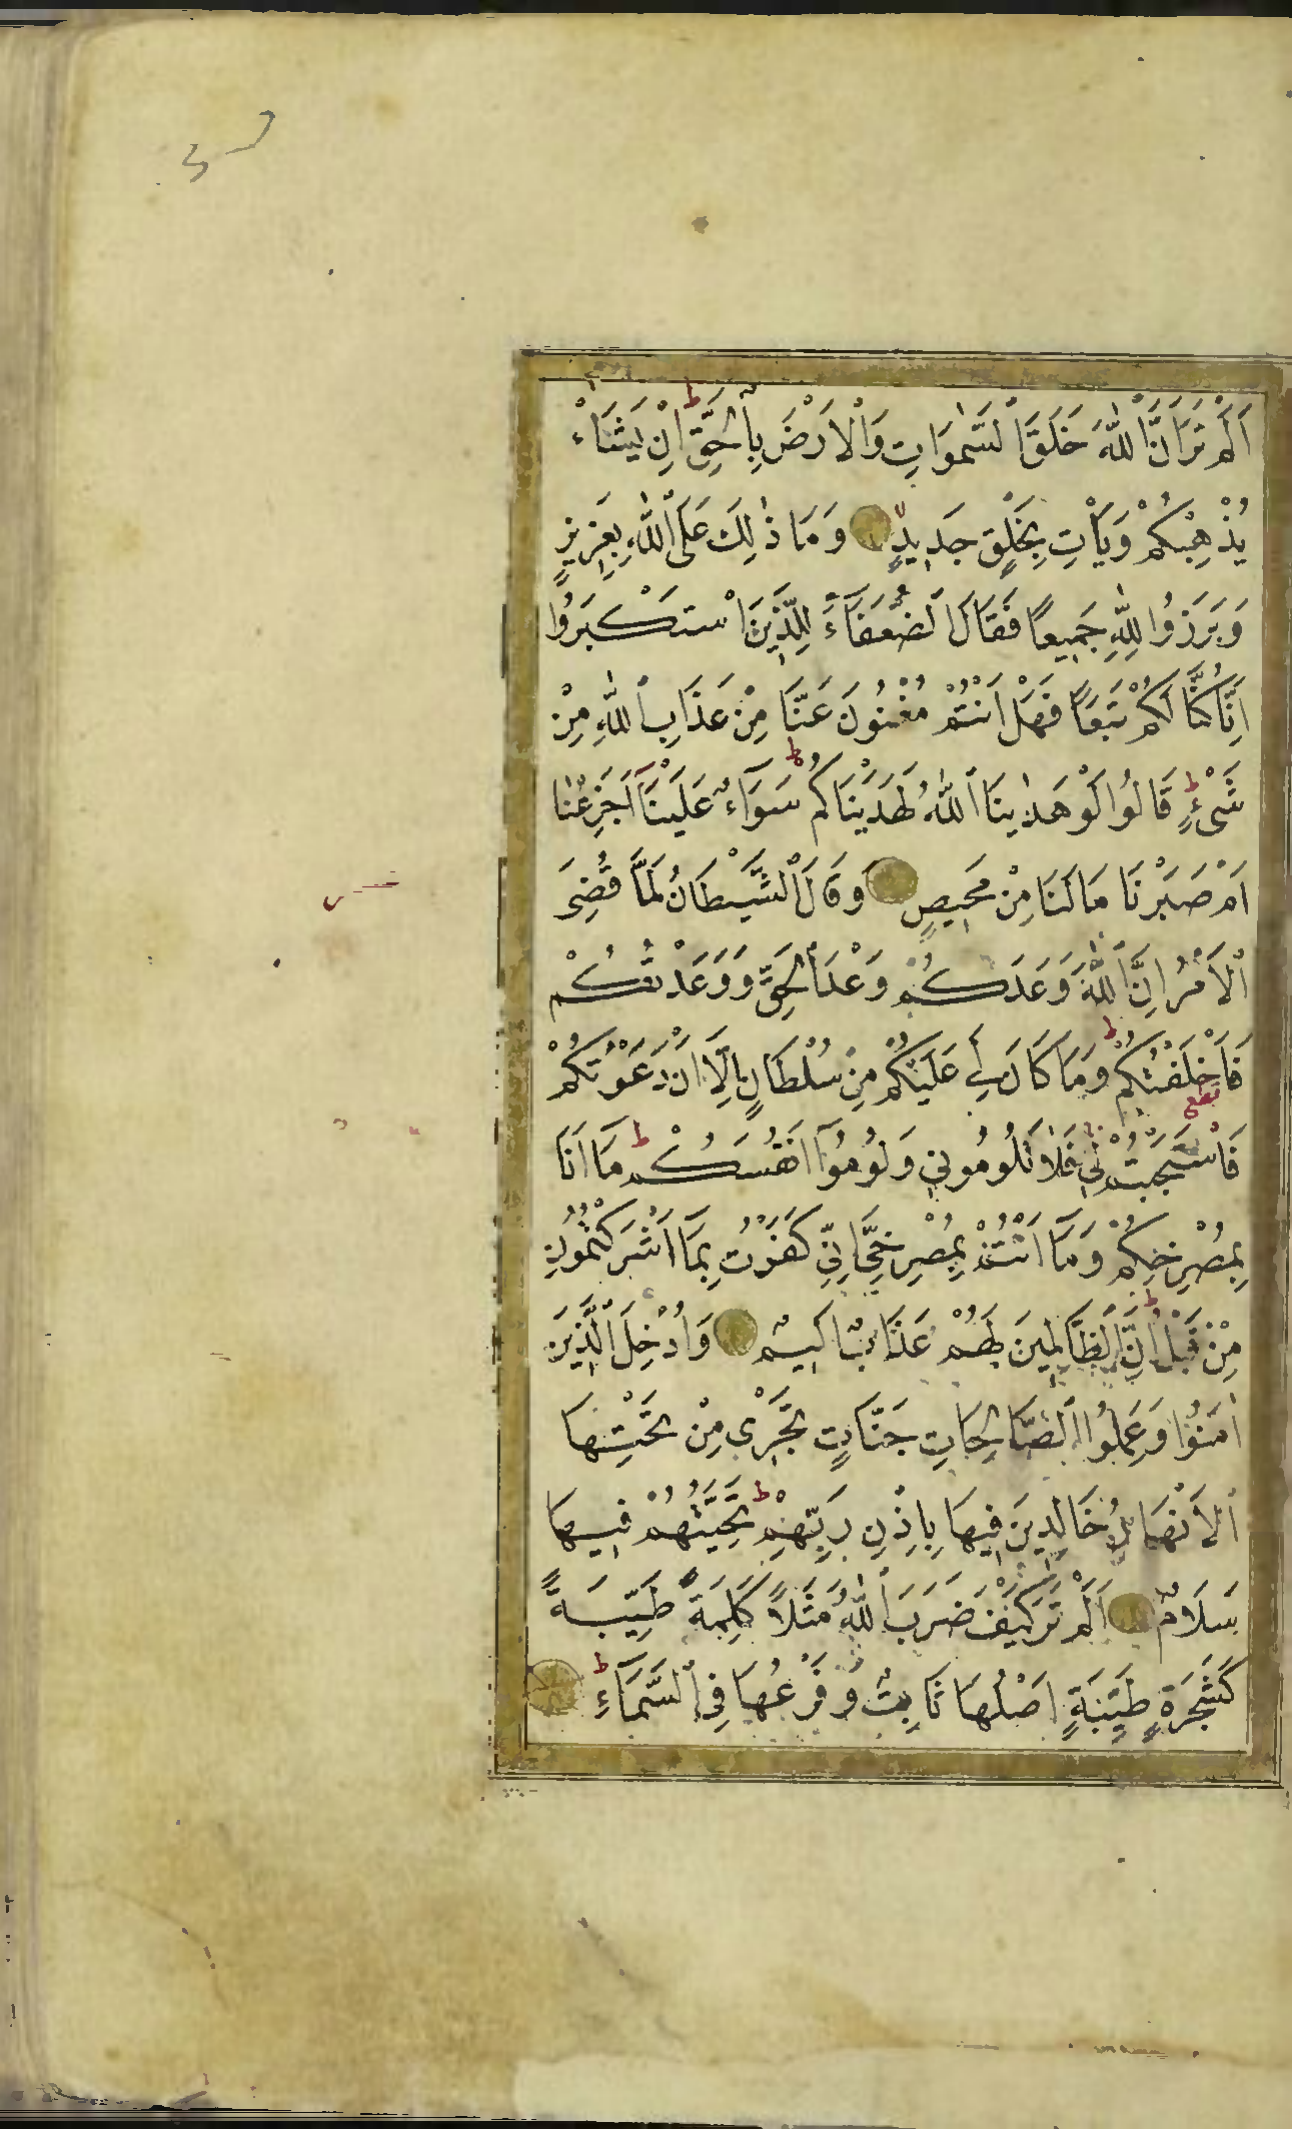 اَلَمْ تَرَ اَنَّ ٱللّٰهَ خَلَقَ ٱلسَّمٰوَاتِ وَٱلْاَرْضَ بِٱلْحَقِّ ط اِنْ يَشَاْءْ
يُذْهِبْكُمْ وَيَأْتِ بِخَلْقٍ جَدِيدٍ وَمَا ذٰلِكَ عَلَى ٱللّٰهِ بِعَزِيزٍ
وَبَرَزُوا لِلّٰهِ جَمِيعًا فَقَالَ ٱلضُّعَفَاءُ لِلَّذِينَ اسْتَكْبَرُوا
اِنَّا كُنَّا لَكُمْ تَبَعًا فَهَلْ اَنْتُمْ مُغْنُونَ عَنَّا مِنْ عَذَابِ ٱللّٰهِ مِنْ
شَىْءٍ ط قَالُوا لَوْ هَدٰينَا ٱللّٰهُ لَهَدَيْنَاكُمْ ط سَوَاءٌ عَلَيْنَا اَجَزِعْنَا
اَمْ صَبَرْنَا مَا لَنَا مِنْ مَحِيصٍ وَقَالَ ٱلشَّيْطَانُ لَمَّا قُضِىَ
ٱلْاَمْرُ اِنَّ ٱللّٰهَ وَعَدَكُمْ وَعْدَ ٱلْحَقِّ وَوَعَدْتُكُمْ
فَاَخْلَفْتُكُمْ ط وَمَا كَانَ لِىَ عَلَيْكُمْ مِنْ سُلْطَانٍ اِلَّا اَنْ دَعَوْتُكُمْ
فَاسْتَجَبْتُمْ لِى فَلَا تَلُومُونِى وَلُومُوا اَنْفُسَكُمْ ط مَا اَنَا
بِمُصْرِخِكُمْ وَمَا اَنْتُمْ بِمُصْرِخِىَّ اِنِّى كَفَرْتُ بِمَا اَشْرَكْتُمُونِ
مِنْ قَبْلُ ط اِنَّ ٱلظَّالِمِينَ لَهُمْ عَذَابٌ اَلِيمٌ وَاُدْخِلَ ٱلَّذِينَ
اٰمَنُوا وَعَمِلُوا ٱلصَّالِحَاتِ جَنَّاتٍ تَجْرِى مِنْ تَحْتِهَا
ٱلْاَنْهَارُ خَالِدِينَ فِيهَا بِاِذْنِ رَبِّهِمْ ط تَحِيَّتُهُمْ فِيهَا
سَلَامٌ اَلَمْ تَرَ كَيْفَ ضَرَبَ ٱللّٰهُ مَثَلًا كَلِمَةً طَيِّبَةً
كَشَجَرَةٍ طَيِّبَةٍ اَصْلُهَا ثَابِتٌ وَفَرْعُهَا فِى ٱلسَّمَاءِ ط